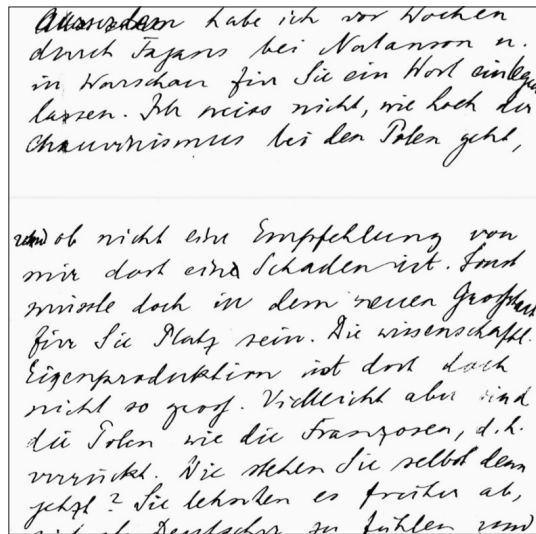 Ausserdem habe ich vor Wochen
durch Fajans bei Natanson u.
in Warschau für Sie ein Wort einlegen
lassen. Ich weiss nicht, wie hoch der
Chauvinismus bei den Polen geht,
und ob nicht eine Empfehlung von
mir dort ein Schaden ist. Sonst
müsste doch in dem neuen
für Sie Platz sein. Die wissenschaftl.
Eigenproduktion ist dort doch
nicht so gross. Vielleicht aber sind
die Polen wie die Franzosen, d.h.
verrückt. Wie stehen Sie selbst denn
jetzt? Sie lehnten es früher ab,
sich als Deutscher zu fühlen und